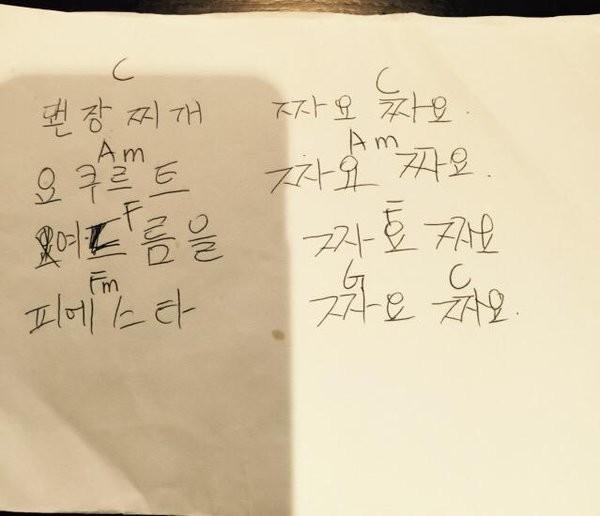 C C
뎬장찌개 짜요 짜요.
Am Am
요쿠르트 짜요 짜요.
F F
여드름을 짜요 짜요
Fm G C
피에스타 짜요 짜요.